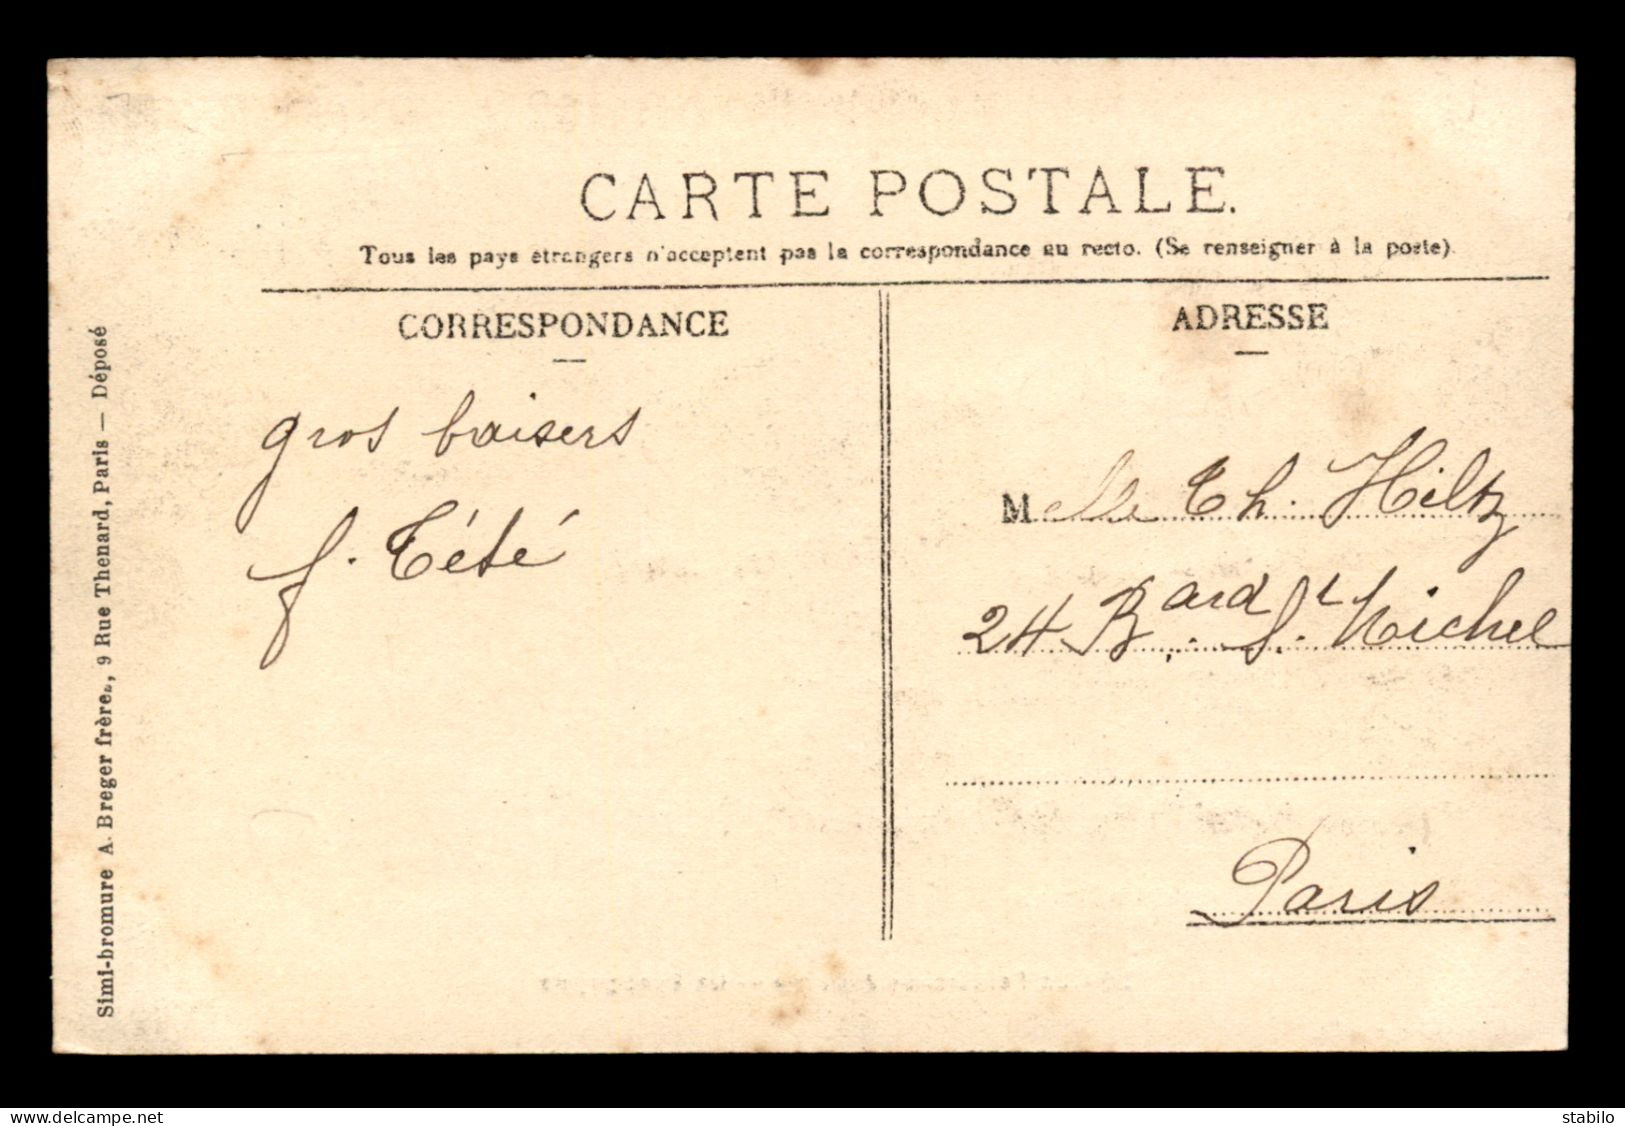 CARTE POSTALE.
Tous les pays étrangers n'acceptent pas la correspondance au recto. (Se renseigner à la poste)
CORRESPONDANCE
gros baisers
f. Tété
ADRESSE
Melle Th. Hiltz
24 Bard. St. Michel
Paris
Simi-bromure A. Breger frères, 9 Rue Thenard, Paris — Déposé
delcampe.net
stabilo